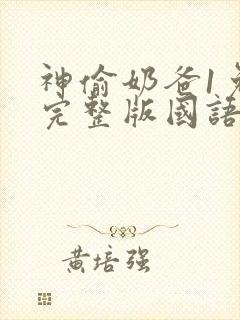 神偷奶爸1免
完整版國語
黄培强